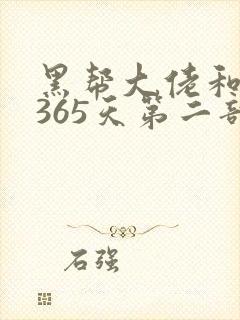 黑帮大佬和
365天第二部
石强